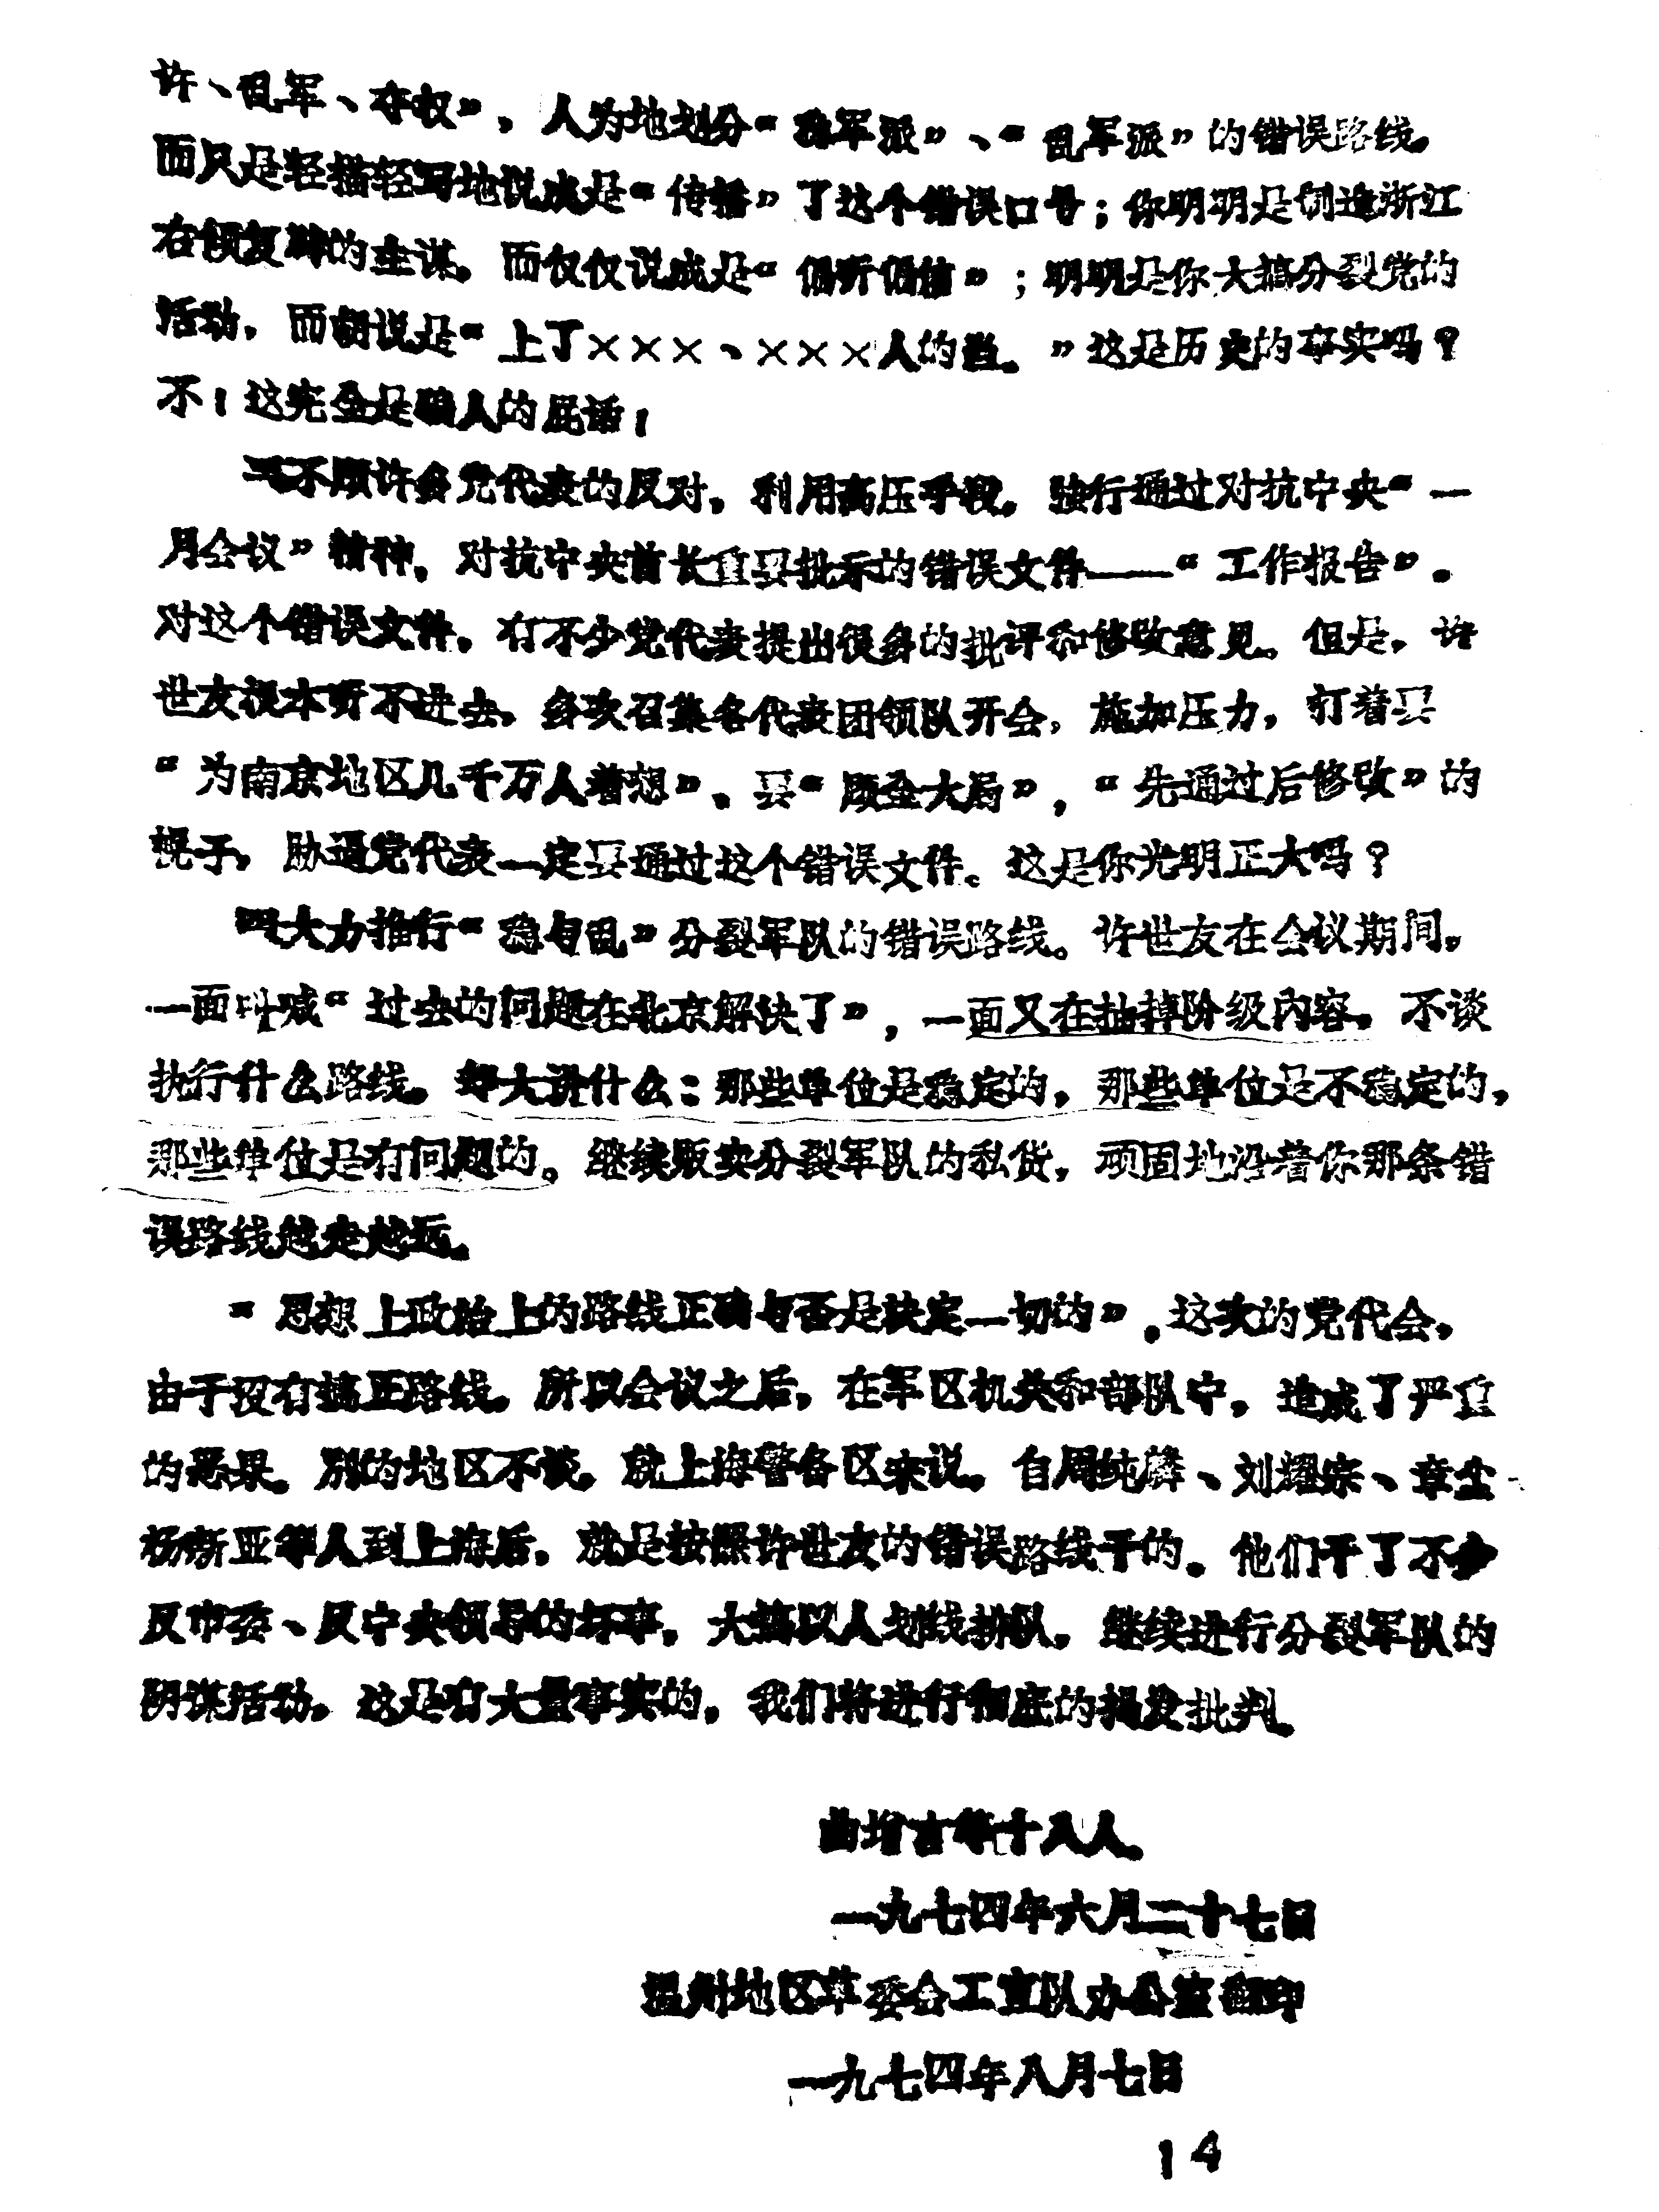 许、乱军、夺权”，人为地划分“稳军派”、“乱军派”的错误路线。
而只是轻描轻写地说成是“传播”了这个错误口号；你明明是制造浙江
右倾复辟的主谋。而仅仅说成是“偏听偏信”；明明是你大搞分裂党的
活动，而胡说是“上了×××、×××人的当。”这是历史的事实吗？
不！这完全是骗人的屁话！
三不顾许多党代表的反对，利用高压手段，强行通过对抗中央“一
月会议”精神，对抗中央首长重要批示的错误文件——“工作报告”。
对这个错误文件，有不少党代表提出很多的批评和修改意见。但是，许
世友根本听不进去，多次召集各代表团领队开会，施加压力，打着要
“为南京地区几千万人着想”、要“顾全大局”，“先通过后修改”的
幌子，胁逼党代表一定要通过这个错误文件。这是你光明正大吗？
四大力推行“稳与乱”分裂军队的错误路线。许世友在会议期间，
一面叫喊“过去的问题在北京解决了”，一面又在抽掉阶级内容，不谈
执行什么路线。却大讲什么：那些单位是稳定的，那些单位是不稳定的，
那些单位是有问题的。继续贩卖分裂军队的私货，顽固地沿着你那条错
误路线越走越远。
“思想上政治上的路线正确与否是决定一切的”。这次的党代会，
由于没有搞正路线。所以会议之后，在军区机关和部队中，造成了严重
的恶果。别的地区不谈，就上海警备区来说，自周纯麟、刘耀宗、章尘
杨新亚等人到上海后，就是按照许世友的错误路线干的。他们干了不少
反市委、反中央领导的坏事，大搞以人划线排队，继续进行分裂军队的
阴谋活动。这是有大量事实的，我们将进行彻底的揭发批判。
曲增吉等十八人。
一九七四年六月二十七日
温州地区革委会工宣队办公室翻印
一九七四年八月七日
14